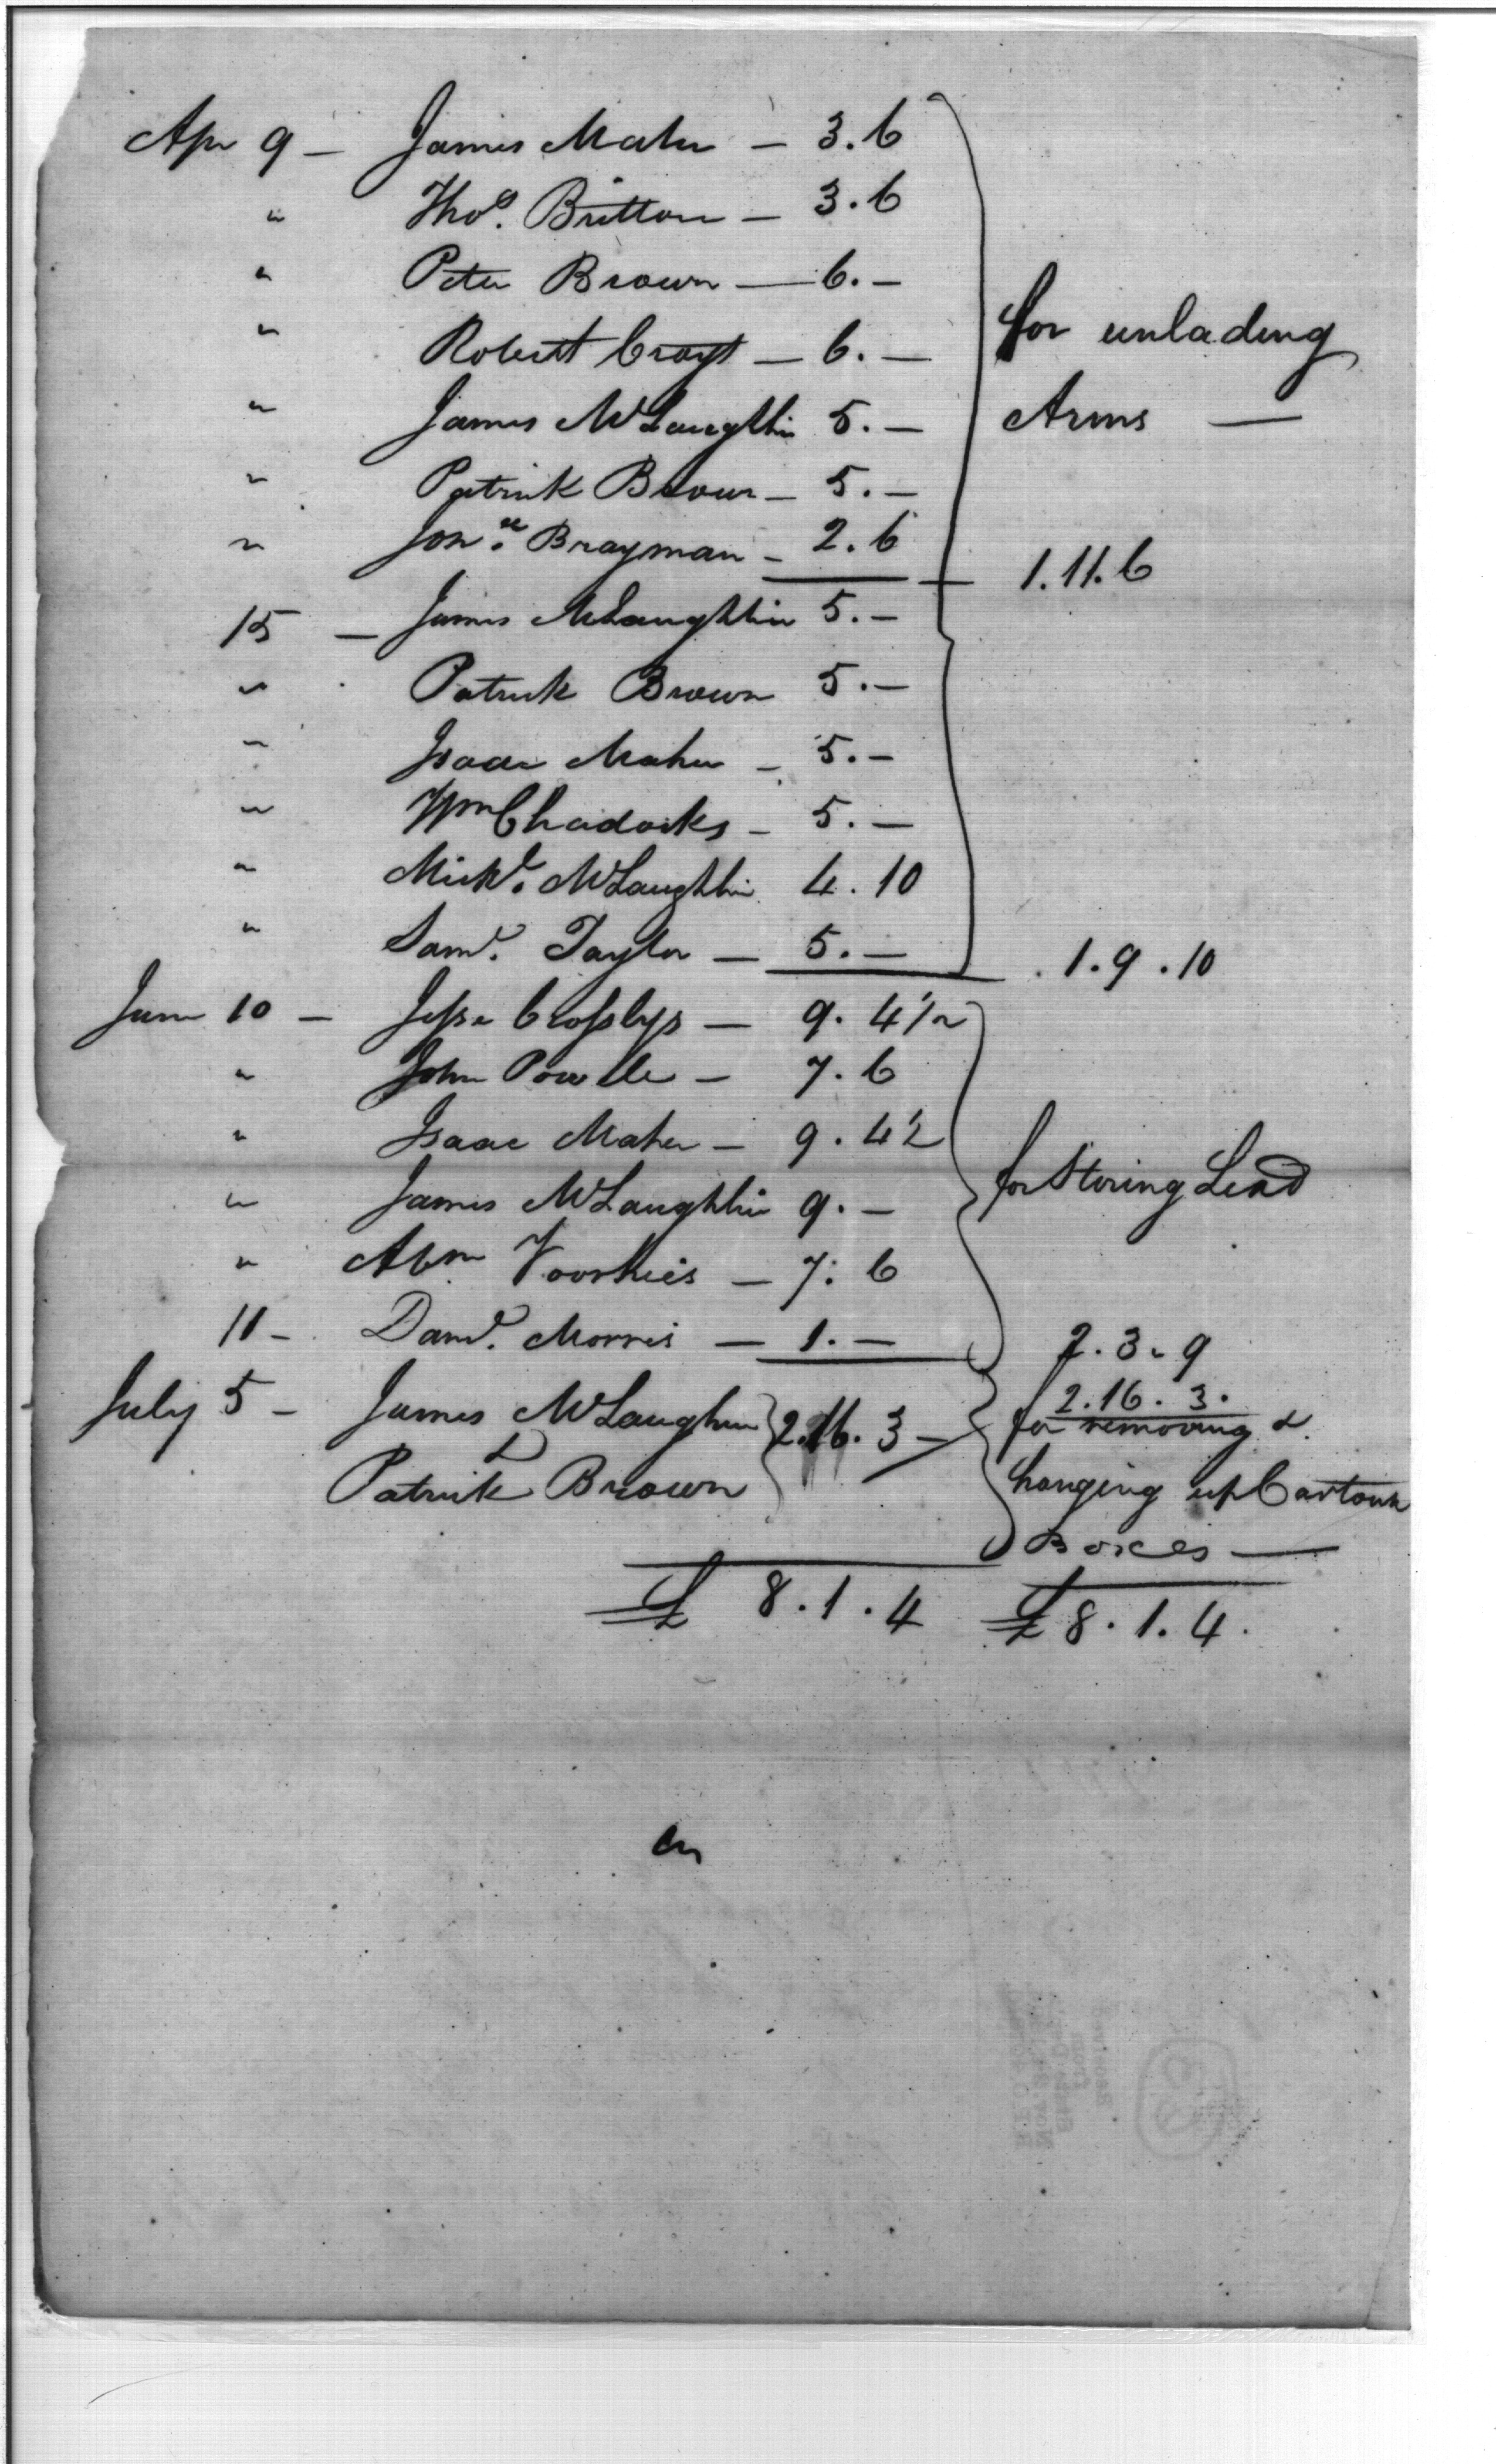 Apr 9 — James Maher — 3.6
" Thos. Britton — 3.6
" Peter Brown — 6.—
" Robert Crayt — 6.— for unlading
" James McLaughlin 5.— Arms —
" Patrick Brown — 5.—
" Jona. Brayman — 2.6 — 1.11.6
15 — James McLaughlin 5.—
" Patrick Brown 5.—
" Isaac Maher — 5.—
" Wm Chadocks — 5.—
" Michl. McLaughlin 4.10
" Saml. Taylor — 5.— 1.9.10
June 10 — Jesse Crosslys — 9.4 1/2
" John Powelle — 7.6
" Isaac Maher — 9.4 1/2
" James McLaughlin 9.— for Storing Lead
" Abm Voorhies — 7.6
11 — Danl. Morris — 1.— 2.3.9
July 5 — James McLaughlin 2.16.3 — 2.16.3.
& for removing &
Patrick Brown hanging up Cartouch
Boxes —
£ 8.1.4 £ 8.1.4.